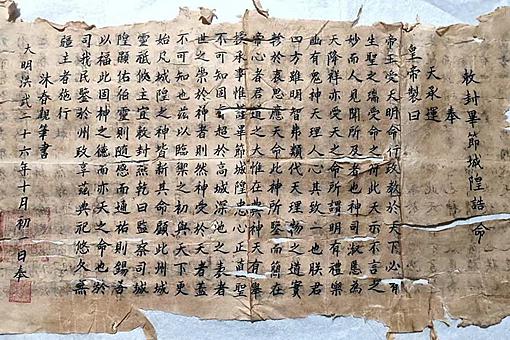 敕封畢節城隍誥命
奉
天承運
皇帝製曰
帝王受天明命行政教於天下必有
生聖之瑞受命之符此天示不言之
妙而人見聞所及者也神司淑慝為
天降祥亦受天之命所謂明有禮樂
幽有鬼神天理人心其致一也朕君
四方雖明智弗類代天理物之道實
罄於衷思應天命此神所鑒而簡在
帝心者君道之大惟在典神天有舉
授承事惟謹畢節城隍忠心正直聖
不可知固有超於高城深池之表者
世之崇於神者則然神受於天者蓋
不可知也茲以臨禦之初與天下更
始凡城隍之神皆新其命顧此州城
靈祇攸主宜敕封燕乾曰監察司城
隍顯佑伯靈則隨感而通祐則錫善
以福此固神之德而亦天之命也於
司我民鑒於州政享茲典祀悠久無
疆主者施行
沐春親筆書
大明洪武二十六年十月初一日奉